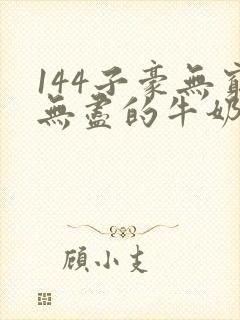 144子豪無窮
無盡的牛奶
顧小支